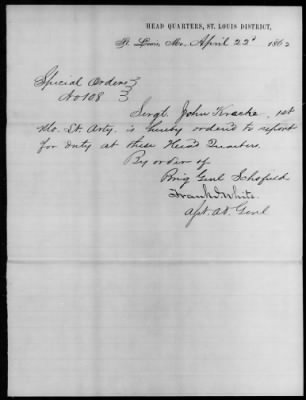 HEAD QUARTERS, ST. LOUIS DISTRICT,
St. Louis, Mo., April 22d 1862
Special Orders
No 108
Sergt. John Kracke, 1st
Mo. Lt. Arty. is hereby ordered to report
for duty at these Head Quarters.
By order of
Brig Genl Schofield
Frank J. White.
Asst. At. Genl